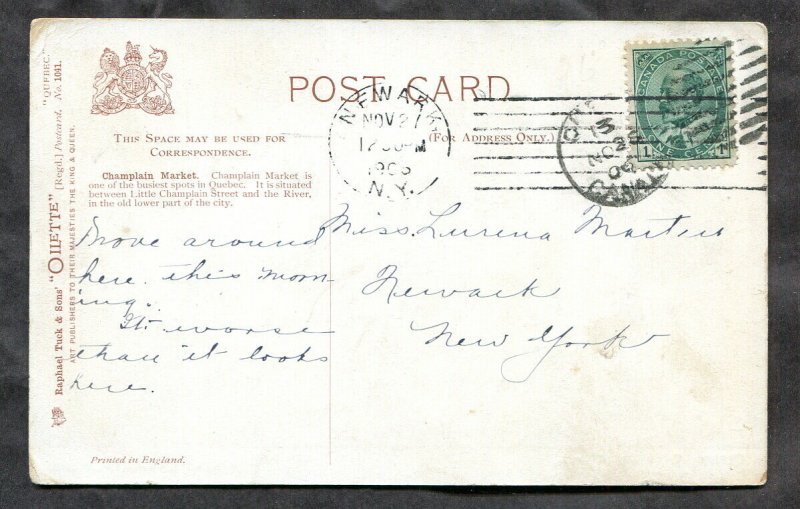 POST CARD
THIS SPACE MAY BE USED FOR
CORRESPONDENCE.
(FOR ADDRESS ONLY.)
Champlain Market. Champlain Market is
one of the busiest spots in Quebec. It is situated
between Little Champlain Street and the River,
in the old lower part of the city.
Drove around
here this morn-
ing.
It's worse
than it looks
here.
Miss. Lurena Martin
Newark
New York
NEWARK,
NOV 2
12
M
1906
N.Y.
CANADA POSTAGE
1 ONE CENT 1
NO 2
06
CANADA
"QUEBEC."
Raphael Tuck & Sons' "OILETTE" [Regd.] Postcard, No. 1041.
ART PUBLISHERS TO THEIR MAJESTIES THE KING & QUEEN.
Printed in England.